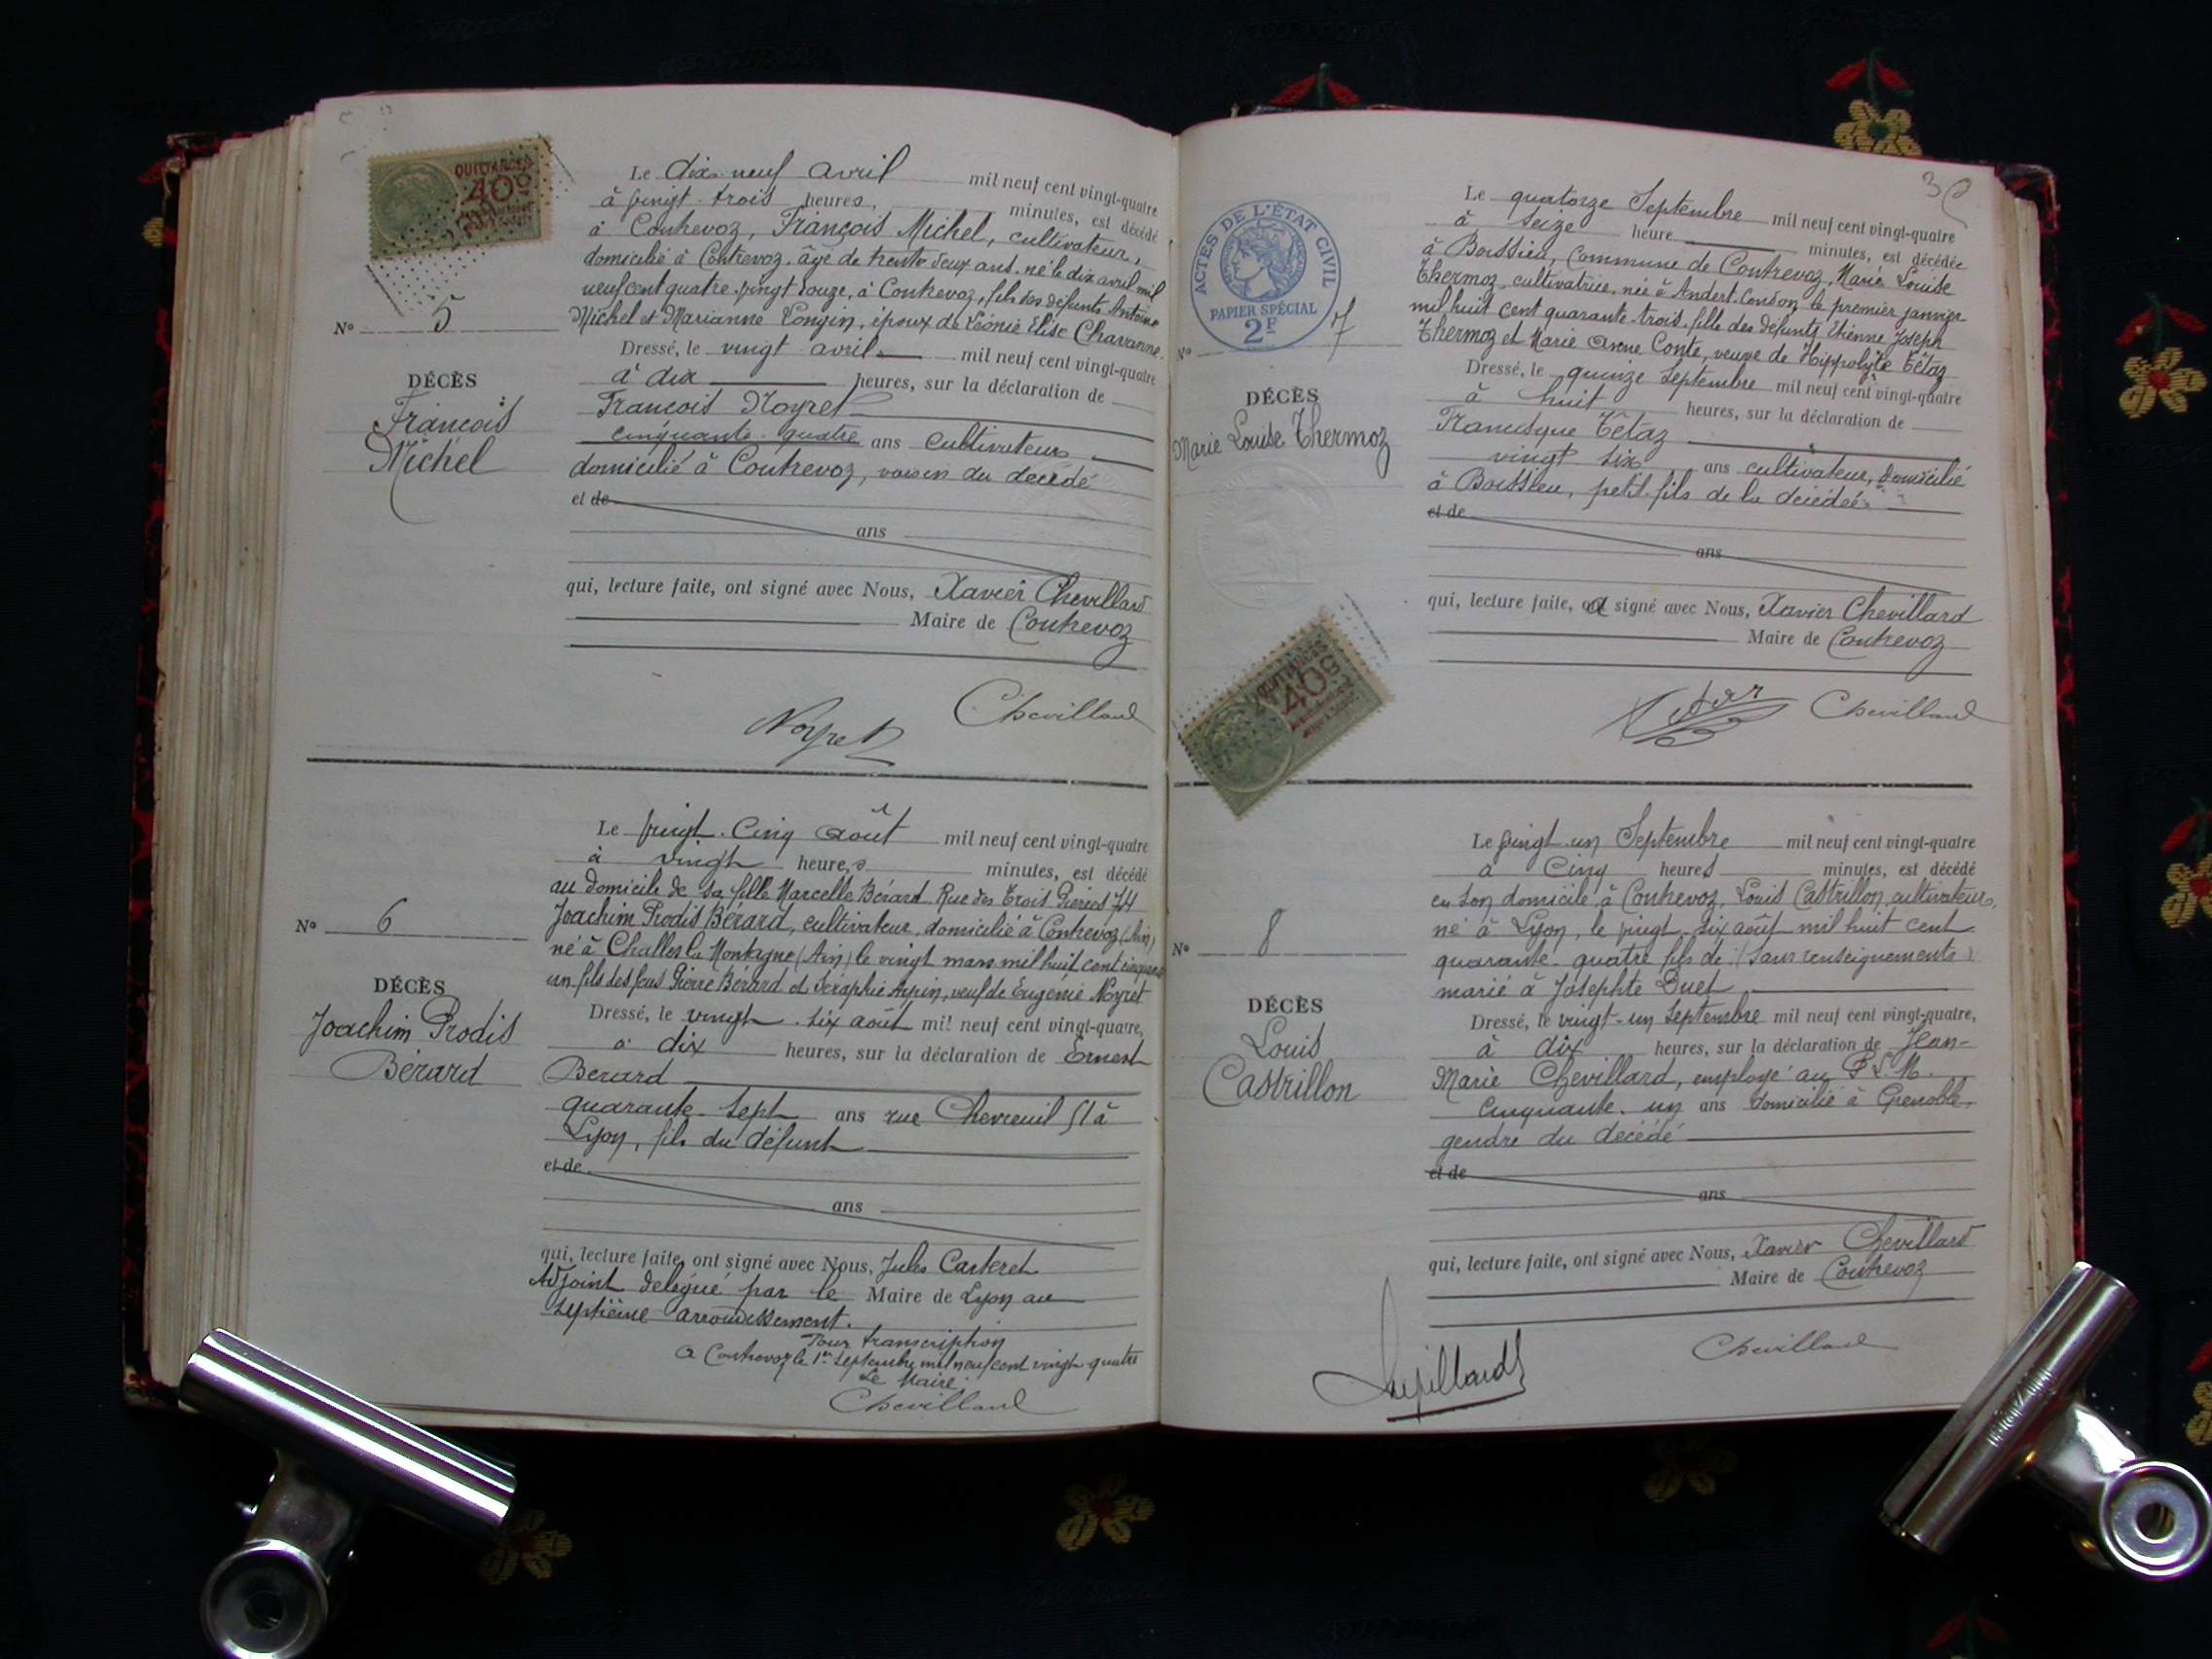 QUITTANCES
40c
Le dix-neuf avril mil neuf cent vingt-quatre
à vingt-trois heures, minutes, est décédé
à Contrevoz, François Michel, cultivateur,
domicilié à Contrevoz, âgé de trente deux ans, né le dix avril mil
neuf cent quatre-vingt douze, à Contrevoz, fils des défunts Antoine
Michel et Marianne Longin, époux de Léonie Elise Chavanne.
Nº 5
DÉCÈS
François
Michel
Dressé, le vingt avril mil neuf cent vingt-quatre
à dix heures, sur la déclaration de
François Noyret
cinquante-quatre ans cultivateur
domicilié à Contrevoz, voisin du décédé
et de
ans
qui, lecture faite, ont signé avec Nous, Xavier Chevillard
Maire de Contrevoz
Noyret Chevillard
Le vingt-cinq août mil neuf cent vingt-quatre
à vingt heures minutes, est décédé
au domicile de sa fille Marcelle Bérard Rue des Trois Pierres 74
Joachim Prodis Bérard, cultivateur, domicilié à Contrevoz (Ain)
né à Challes la Montagne (Ain) le vingt mars mil huit cent cinquante
un fils des feus Pierre Bérard et Séraphie Arpin, veuf de Eugenie Noyret
Nº 6
DÉCÈS
Joachim Prodis
Bérard
Dressé, le vingt-six août mil neuf cent vingt-quatre,
à dix heures, sur la déclaration de Ernest
Berard
quarante-sept ans rue Chevreuil 51 à
Lyon, fils du défunt
et de
ans
qui, lecture faite, ont signé avec Nous, Jules Carteret
Adjoint délégué par le Maire de Lyon au
septième arrondissement.
Pour transcription
A Contrevoz le 1er septembre mil neuf cent vingt-quatre
Le Maire
Chevillard
ACTES DE L'ÉTAT CIVIL
PAPIER SPÉCIAL
2F
Le quatorze Septembre mil neuf cent vingt-quatre
à seize heure minutes, est décédée
à Boissieu, Commune de Contrevoz, Marie Louise
Thermoz, cultivatrice, née à Andert-Condon, le premier janvier
mil huit cent quarante-trois, fille des défunts Etienne Joseph
Thermoz et Marie Anne Conte, veuve de Hippolyte Tétaz
Nº 7
DÉCÈS
Marie Louise Thermoz
Dressé, le quinze Septembre mil neuf cent vingt-quatre
à huit heures, sur la déclaration de
Francisque Tétaz
vingt six ans cultivateur, domicilié
à Boissieu, petit-fils de la décédée
et de
ans
qui, lecture faite, a signé avec Nous, Xavier Chevillard
Maire de Contrevoz
Chevillard
40c
Le vingt-un Septembre mil neuf cent vingt-quatre
à Cinq heures minutes, est décédé
en son domicile, à Contrevoz, Louis Castrillon, cultivateur,
né à Lyon, le vingt-six août mil huit cent
quarante-quatre fils de (sans renseignements)
marié à Josephte Buet
Nº 8
DÉCÈS
Louis
Castrillon
Dressé, le vingt-un Septembre mil neuf cent vingt-quatre,
à dix heures, sur la déclaration de Jean-
Marie Chevillard, employé au P.L.M.
cinquante-un ans domicilié à Grenoble,
gendre du décédé
et de
ans
qui, lecture faite, ont signé avec Nous, Xavier Chevillard
Maire de Contrevoz
Chevillard
Chevillard